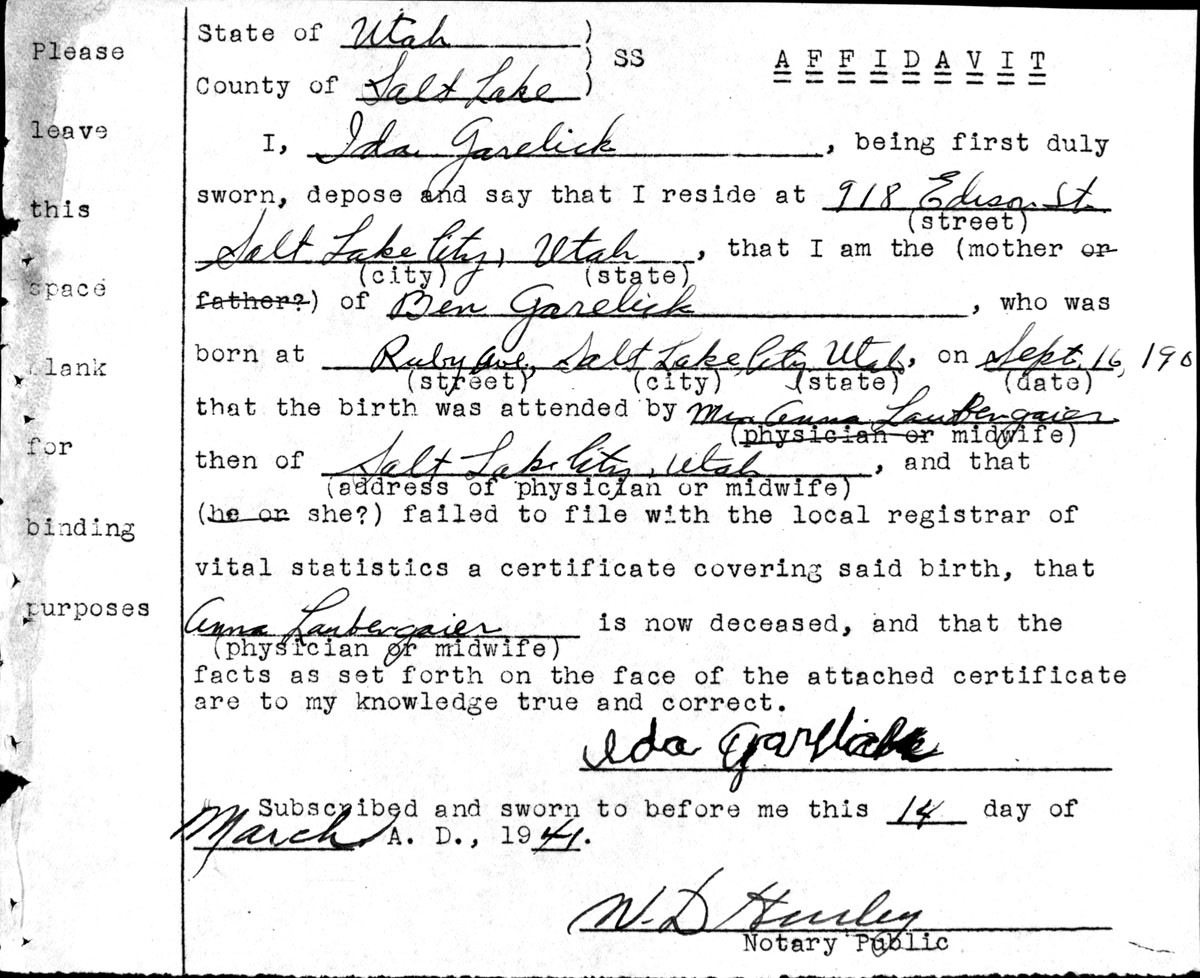 Please
leave
this
space
blank
for
binding
purposes
State of Utah )
) SS AFFIDAVIT
County of Salt Lake )
I, Ida Garelick , being first duly
sworn, depose and say that I reside at 918 Edison St.
(street)
Salt Lake City, Utah , that I am the (mother or
(city) (state)
father?) of Ben Garelick , who was
born at Ruby Ave, Salt Lake City Utah, on Sept. 16, 190
(street) (city) (state) (date)
that the birth was attended by Mrs Anna Laubengaier
(physician or midwife)
then of Salt Lake City, Utah , and that
(address of physician or midwife)
(he or she?) failed to file with the local registrar of
vital statistics a certificate covering said birth, that
Anna Laubengaier is now deceased, and that the
(physician or midwife)
facts as set forth on the face of the attached certificate
are to my knowledge true and correct.
Ida Garelick
Subscribed and sworn to before me this 14 day of
March A. D., 1941.
W. D. Hurley
Notary Public